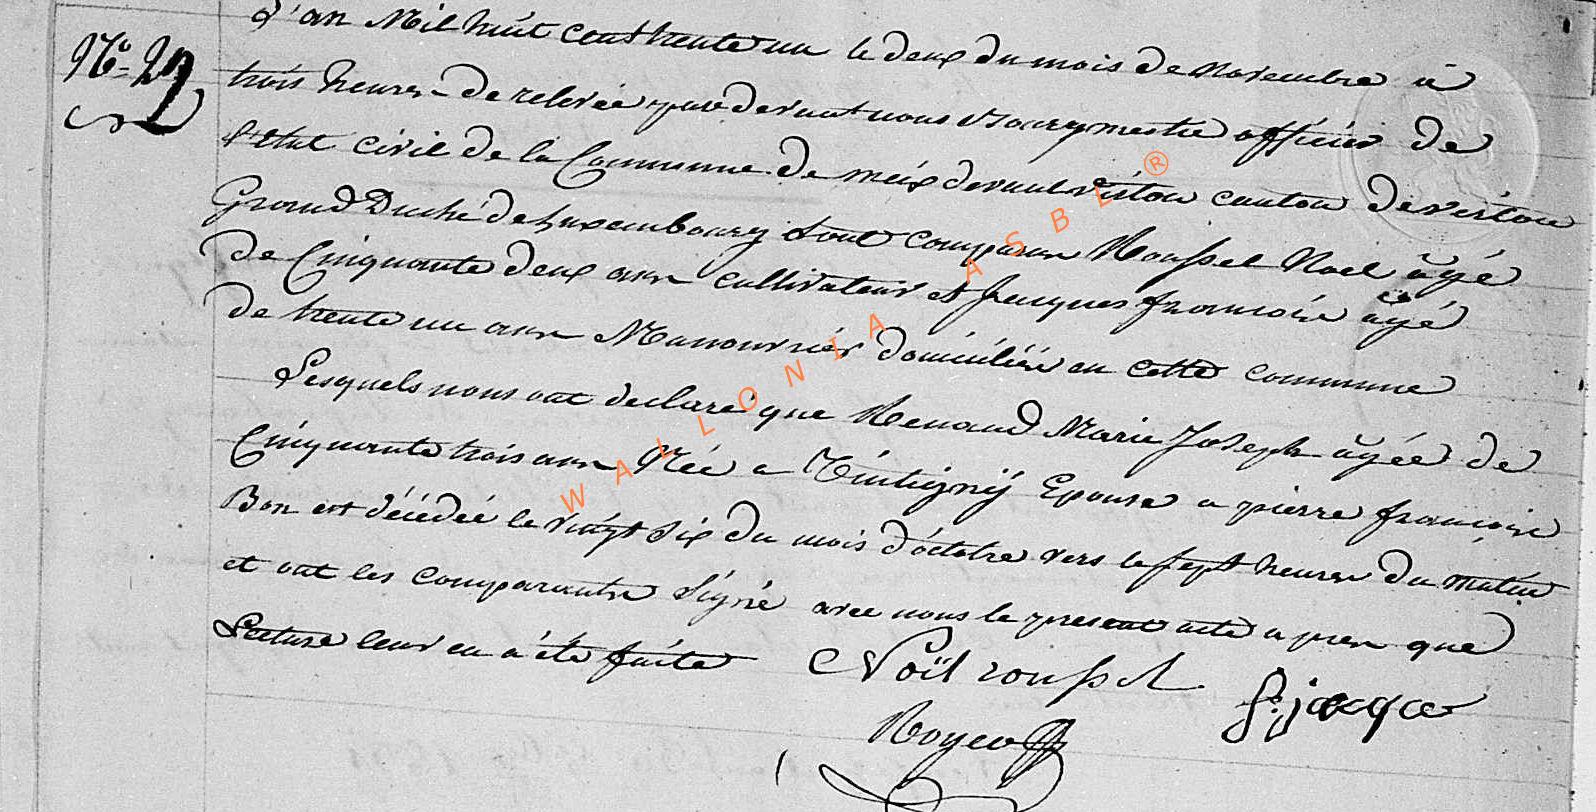 L'an Mil huit cent trente un le deux du mois de novembre à
N° 29
trois heures de relevée par devant nous Bourgmestre officier de
l'etat civil de la Commune de meix devant virton canton de virton
Grand Duché de Luxembourg sont comparu Roussel Noel âgé
de Cinquante deux ans cultivateur et Jacques francois âgé
de trente un ans Manouvrier domiciliés en cette commune
Lesquels nous ont declaré que Renaud Marie Joseph agée de
Cinquante trois ans Née a Tintigny Epouse a pierre francois
Bon est décédée le vingt six du mois d'octobre vers le sept heures du matin
et ont les comparants signé avec nous le present acte apres que
Lecture leur en a été faite
Noël roussel
f: jacque
Royer
WALLONIA ASBL ®